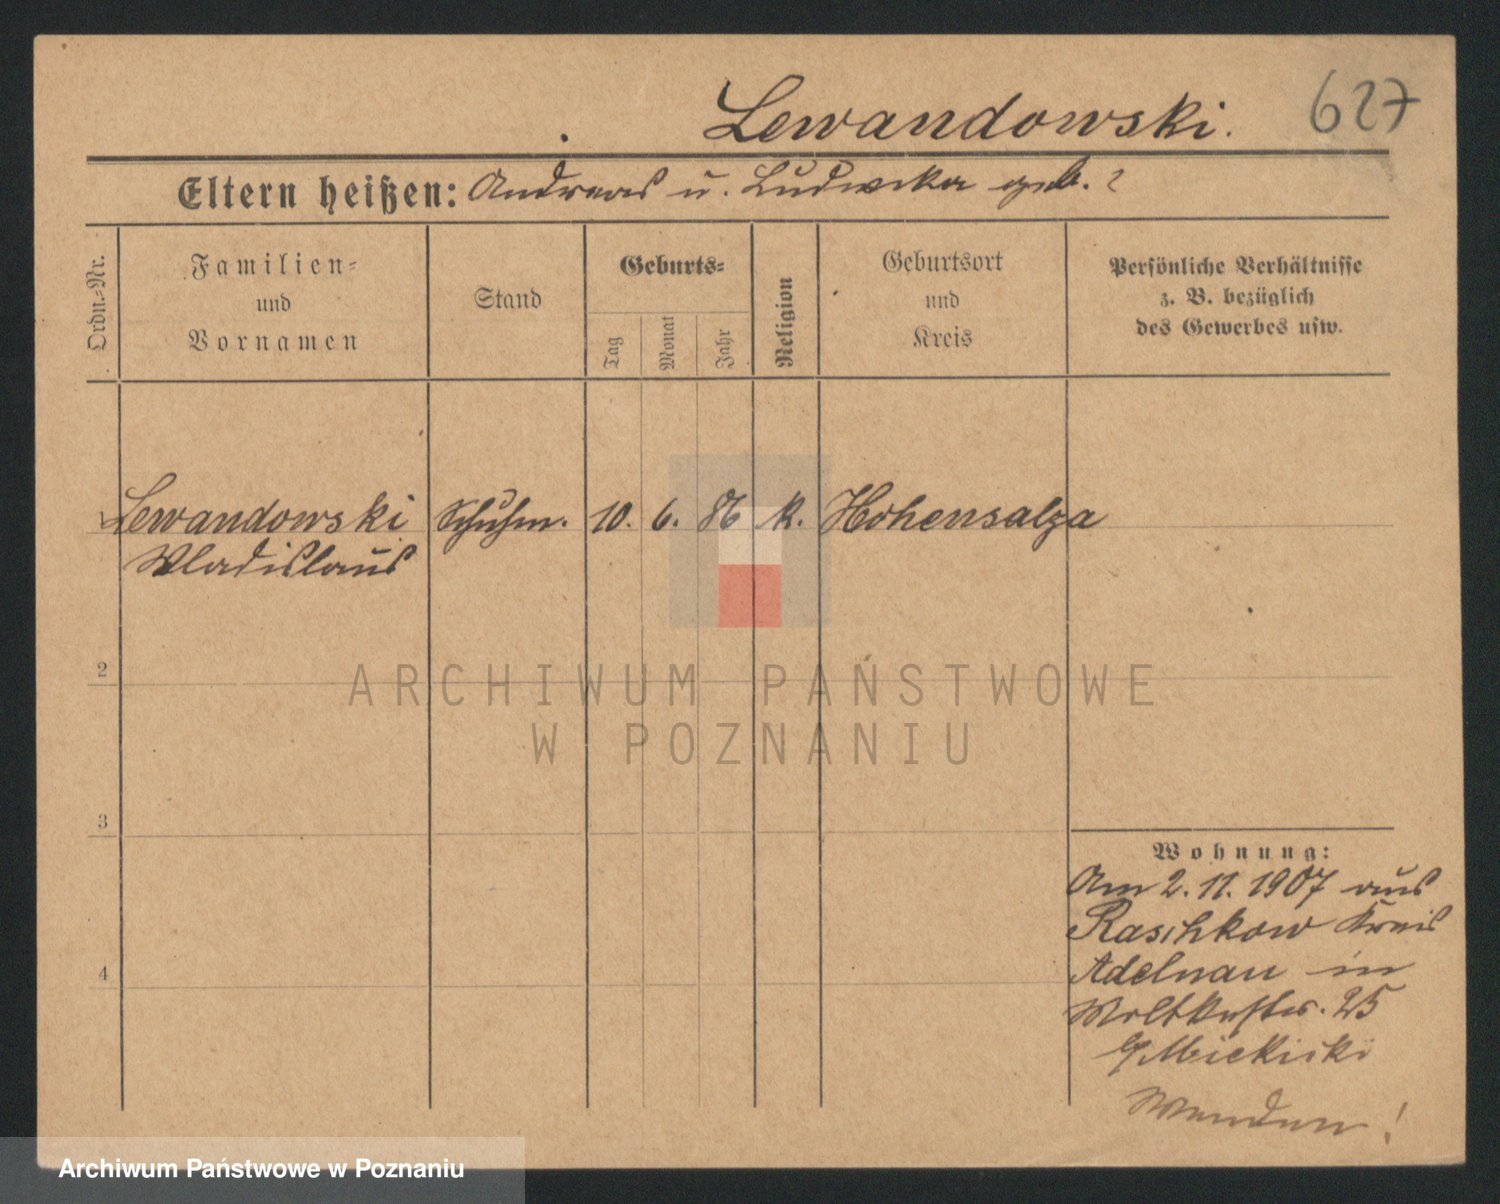 Lewandowski. 627
Eltern heißen: Andreas u. Ludwika geb. ?
Ordn.-Nr.
Familien-
und
Vornamen
Stand
Geburts-
Tag
Monat
Jahr
Religion
Geburtsort
und
Kreis
Persönliche Verhältnisse
z. B. bezüglich
des Gewerbes usw.
Lewandowski Schuhm. 10. 6. 86 k. Hohensalza
Wladislaus
2
ARCHIWUM PAŃSTWOWE
W POZNANIU
3
Wohnung:
Am 2.11.1907 aus
Raschkow Kreis
Adelnau in
Moltkestr. 25
4
Wenden!
Archiwum Państwowe w Poznaniu